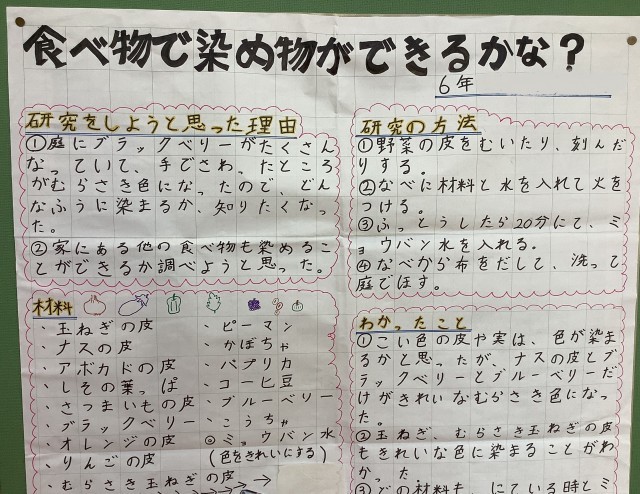 食べ物で染め物ができるかな?
6年
研究をしようと思った理由
①庭にブラックベリーがたくさん
なっていて、手でさわったところ
がむらさき色になったので、どん
なふうに染まるか、知りたくなっ
た。
②家にある他の食べ物も染めるこ
とができるか調べようと思った。
材料
・玉ねぎの皮
・ナスの皮
・アボカドの皮
・しその葉っぱ
・さつまいもの皮
・ブラックベリー
・オレンジの皮
・りんごの皮
・むらさき玉ねぎの皮→
・ピーマン
・かぼちゃ
・パプリカ
・コーヒ豆
・ブルーベリー
・こうちゃ
◎ミョウバン水
(色をきれいにする)
研究の方法
①野菜の皮をむいたり、刻んだ
りする。
②なべに材料と水を入れて火を
つける。
③ふっとうしたら20分にて、ミ
ョウバン水を入れる。
④なべから布をだして、洗って
庭でほす。
わかったこと
①こい色の皮や実は、色が染ま
るかと思ったが、ナスの皮とブ
ラックベリーとブルーベリーだ
けがきれいなむらさき色になっ
た。
②玉ねぎ、むらさき玉ねぎの皮
もきれいな色に染まることがわ
かった。
③どの材料も、にている時とミ